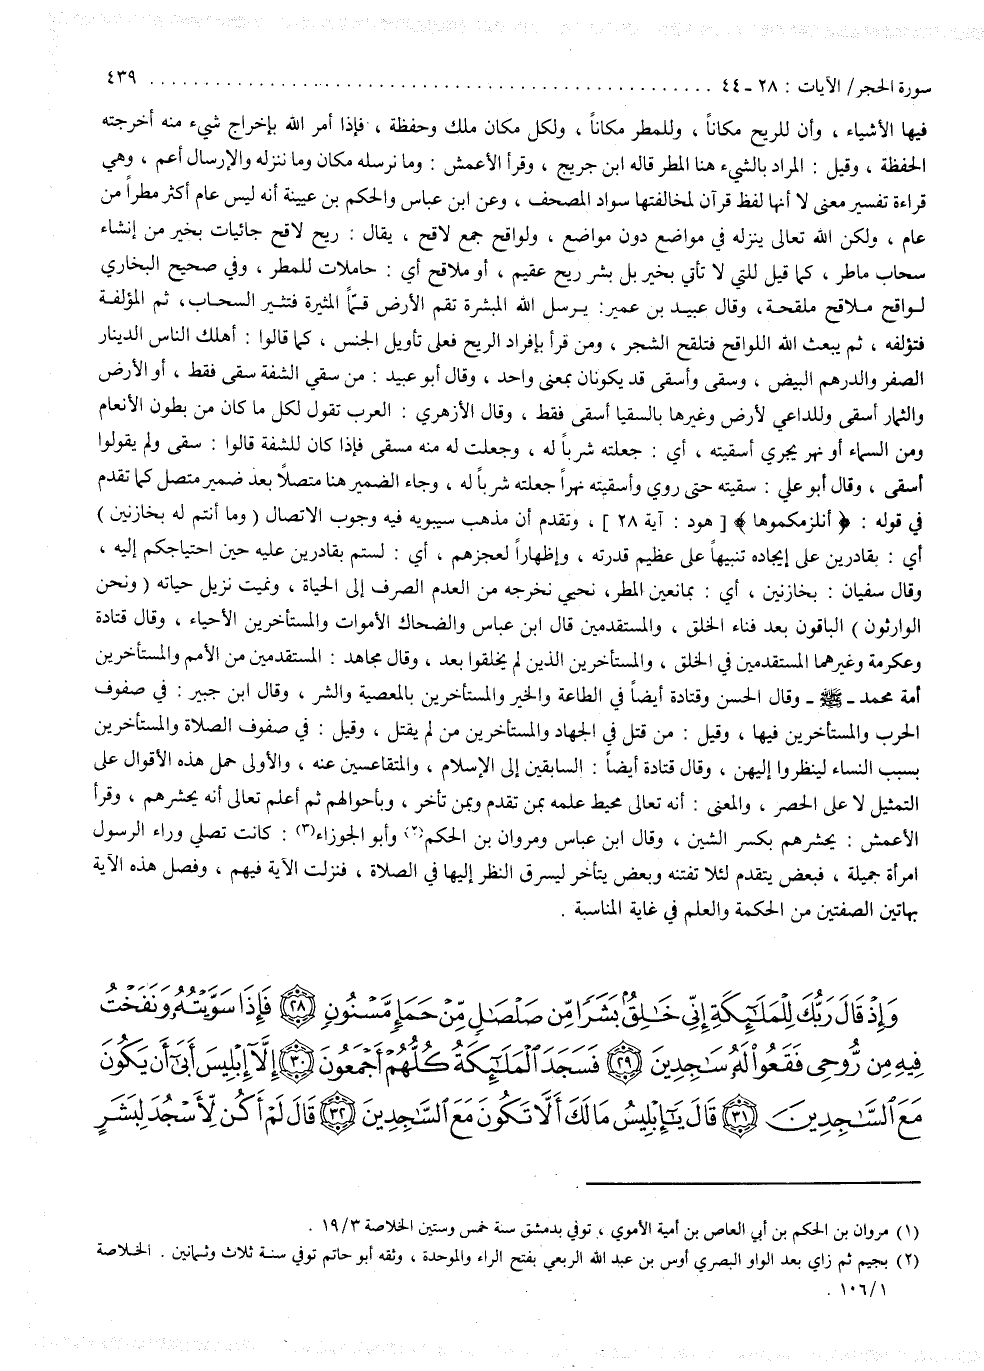 سورة الحجر/ الآيات : ٢٨ ـ ٤٤ . . . . . . . . . . . . . . . . . . . . . . . . . . . . . . . . . . . . . . . . . . . . . . . . . . . ٤٣٩
فيها الأشياء ، وأن للريح مكاناً ، وللمطر مكاناً ، ولكل مكان ملك وحفظة ، فإذا أمر الله بإخراج شيء منه أخرجته
الحفظة ، وقيل : المراد بالشيء هنا المطر قاله ابن جريج ، وقرأ الأعمش : وما نرسله مكان وما ننزله والإرسال أعم ، وهي
قراءة تفسير معنى لا أنها لفظ قرآن لمخالفتها سواد المصحف ، وعن ابن عباس والحكم بن عيينة أنه ليس عام أكثر مطراً من
عام ، ولكن الله تعالى ينزله في مواضع دون مواضع ، ولواقح جمع لاقح ، يقال : ريح لاقح جائيات بخير من إنشاء
سحاب ماطر ، كما قيل للتي لا تأتي بخير بل بشر ريح عقيم ، أو ملاقح أي : حاملات للمطر ، وفي صحيح البخاري
لواقح ملاقح ملقحة، وقال عبيد بن عمير: يرسل الله المبشرة تقم الأرض قمّاً المثيرة فتثير السحاب، ثم المؤلفة
فتؤلفه ، ثم يبعث الله اللواقح فتلقح الشجر ، ومن قرأ بإفراد الريح فعلى تأويل الجنس ، كما قالوا : أهلك الناس الدينار
الصفر والدرهم البيض ، وسقى وأسقى قد يكونان بمعنى واحد ، وقال أبو عبيد : من سقي الشفة سقى فقط ، أو الأرض
والثمار أسقى وللداعي لأرض وغيرها بالسقيا أسقى فقط ، وقال الأزهري : العرب تقول لكل ما كان من بطون الأنعام
ومن السماء أو نهر يجري أسقيته ، أي : جعلته شرباً له ، وجعلت له منه مسقى فإذا كان للشفة قالوا : سقى ولم يقولوا
أسقى ، وقال أبو علي : سقيته حتى روي وأسقيته نهراً جعلته شرباً له ، وجاء الضمير هنا متصلاً بعد ضمير متصل كما تقدم
في قوله : ﴿ أنلزمكموها ﴾ [ هود : آية ٢٨ ] ، وتقدم أن مذهب سيبويه فيه وجوب الاتصال ( وما أنتم له بخازنين )
أي : بقادرين على إيجاده تنبيهاً على عظيم قدرته ، وإظهاراً لعجزهم ، أي : لستم بقادرين عليه حين احتياجكم إليه ،
وقال سفيان : بخازنين ، أي : بمانعين المطر، نحيي نخرجه من العدم الصرف إلى الحياة ، ونميت نزيل حياته ( ونحن
الوارثون ) الباقون بعد فناء الخلق ، والمستقدمين قال ابن عباس والضحاك الأموات والمستأخرين الأحياء ، وقال قتادة
وعكرمة وغيرهما المستقدمين في الخلق ، والمستأخرين الذين لم يخلقوا بعد ، وقال مجاهد : المستقدمين من الأمم والمستأخرين
أمة محمد ـ ﷺ ـ وقال الحسن وقتادة أيضاً في الطاعة والخير والمستأخرين بالمعصية والشر ، وقال ابن جبير : في صفوف
الحرب والمستأخرين فيها ، وقيل : من قتل في الجهاد والمستأخرين من لم يقتل ، وقيل : في صفوف الصلاة والمستأخرين
بسبب النساء لينظروا إليهن ، وقال قتادة أيضاً : السابقين إلى الإسلام ، والمتقاعسين عنه ، والأولى حمل هذه الأقوال على
التمثيل لا على الحصر ، والمعنى : أنه تعالى محيط علمه بمن تقدم وبمن تأخر ، وبأحوالهم ثم أعلم تعالى أنه يحشرهم ، وقرأ
الأعمش : يحشرهم بكسر الشين ، وقال ابن عباس ومروان بن الحكم(٢) وأبو الجوزاء(٣) : كانت تصلي وراء الرسول
امرأة جميلة ، فبعض يتقدم لئلا تفتنه وبعض يتأخر ليسرق النظر إليها في الصلاة ، فنزلت الآية فيهم ، وفصل هذه الآية
بهاتين الصفتين من الحكمة والعلم في غاية المناسبة .
وَإِذْ قَالَ رَبُّكَ لِلْمَلَٰٓئِكَةِ إِنِّى خَٰلِقٌۢ بَشَرًا مِّن صَلْصَٰلٍ مِّنْ حَمَإٍ مَّسْنُونٍ ٢٨ فَإِذَا سَوَّيْتُهُۥ وَنَفَخْتُ
فِيهِ مِن رُّوحِى فَقَعُوا۟ لَهُۥ سَٰجِدِينَ ٢٩ فَسَجَدَ ٱلْمَلَٰٓئِكَةُ كُلُّهُمْ أَجْمَعُونَ ٣٠ إِلَّآ إِبْلِيسَ أَبَىٰٓ أَن يَكُونَ
مَعَ ٱلسَّٰجِدِينَ ٣١ قَالَ يَٰٓإِبْلِيسُ مَا لَكَ أَلَّا تَكُونَ مَعَ ٱلسَّٰجِدِينَ ٣٢ قَالَ لَمْ أَكُن لِّأَسْجُدَ لِبَشَرٍ
(١) مروان بن الحكم بن أبي العاص بن أمية الأموي ، توفي بدمشق سنة خمس وستين الخلاصة ١٩/٣ .
(٢) بجيم ثم زاي بعد الواو البصري أوس بن عبد الله الربعي بفتح الراء والموحدة ، وثقه أبو حاتم توفي سنة ثلاث وثمانين . الخلاصة
١٠٦/١ .